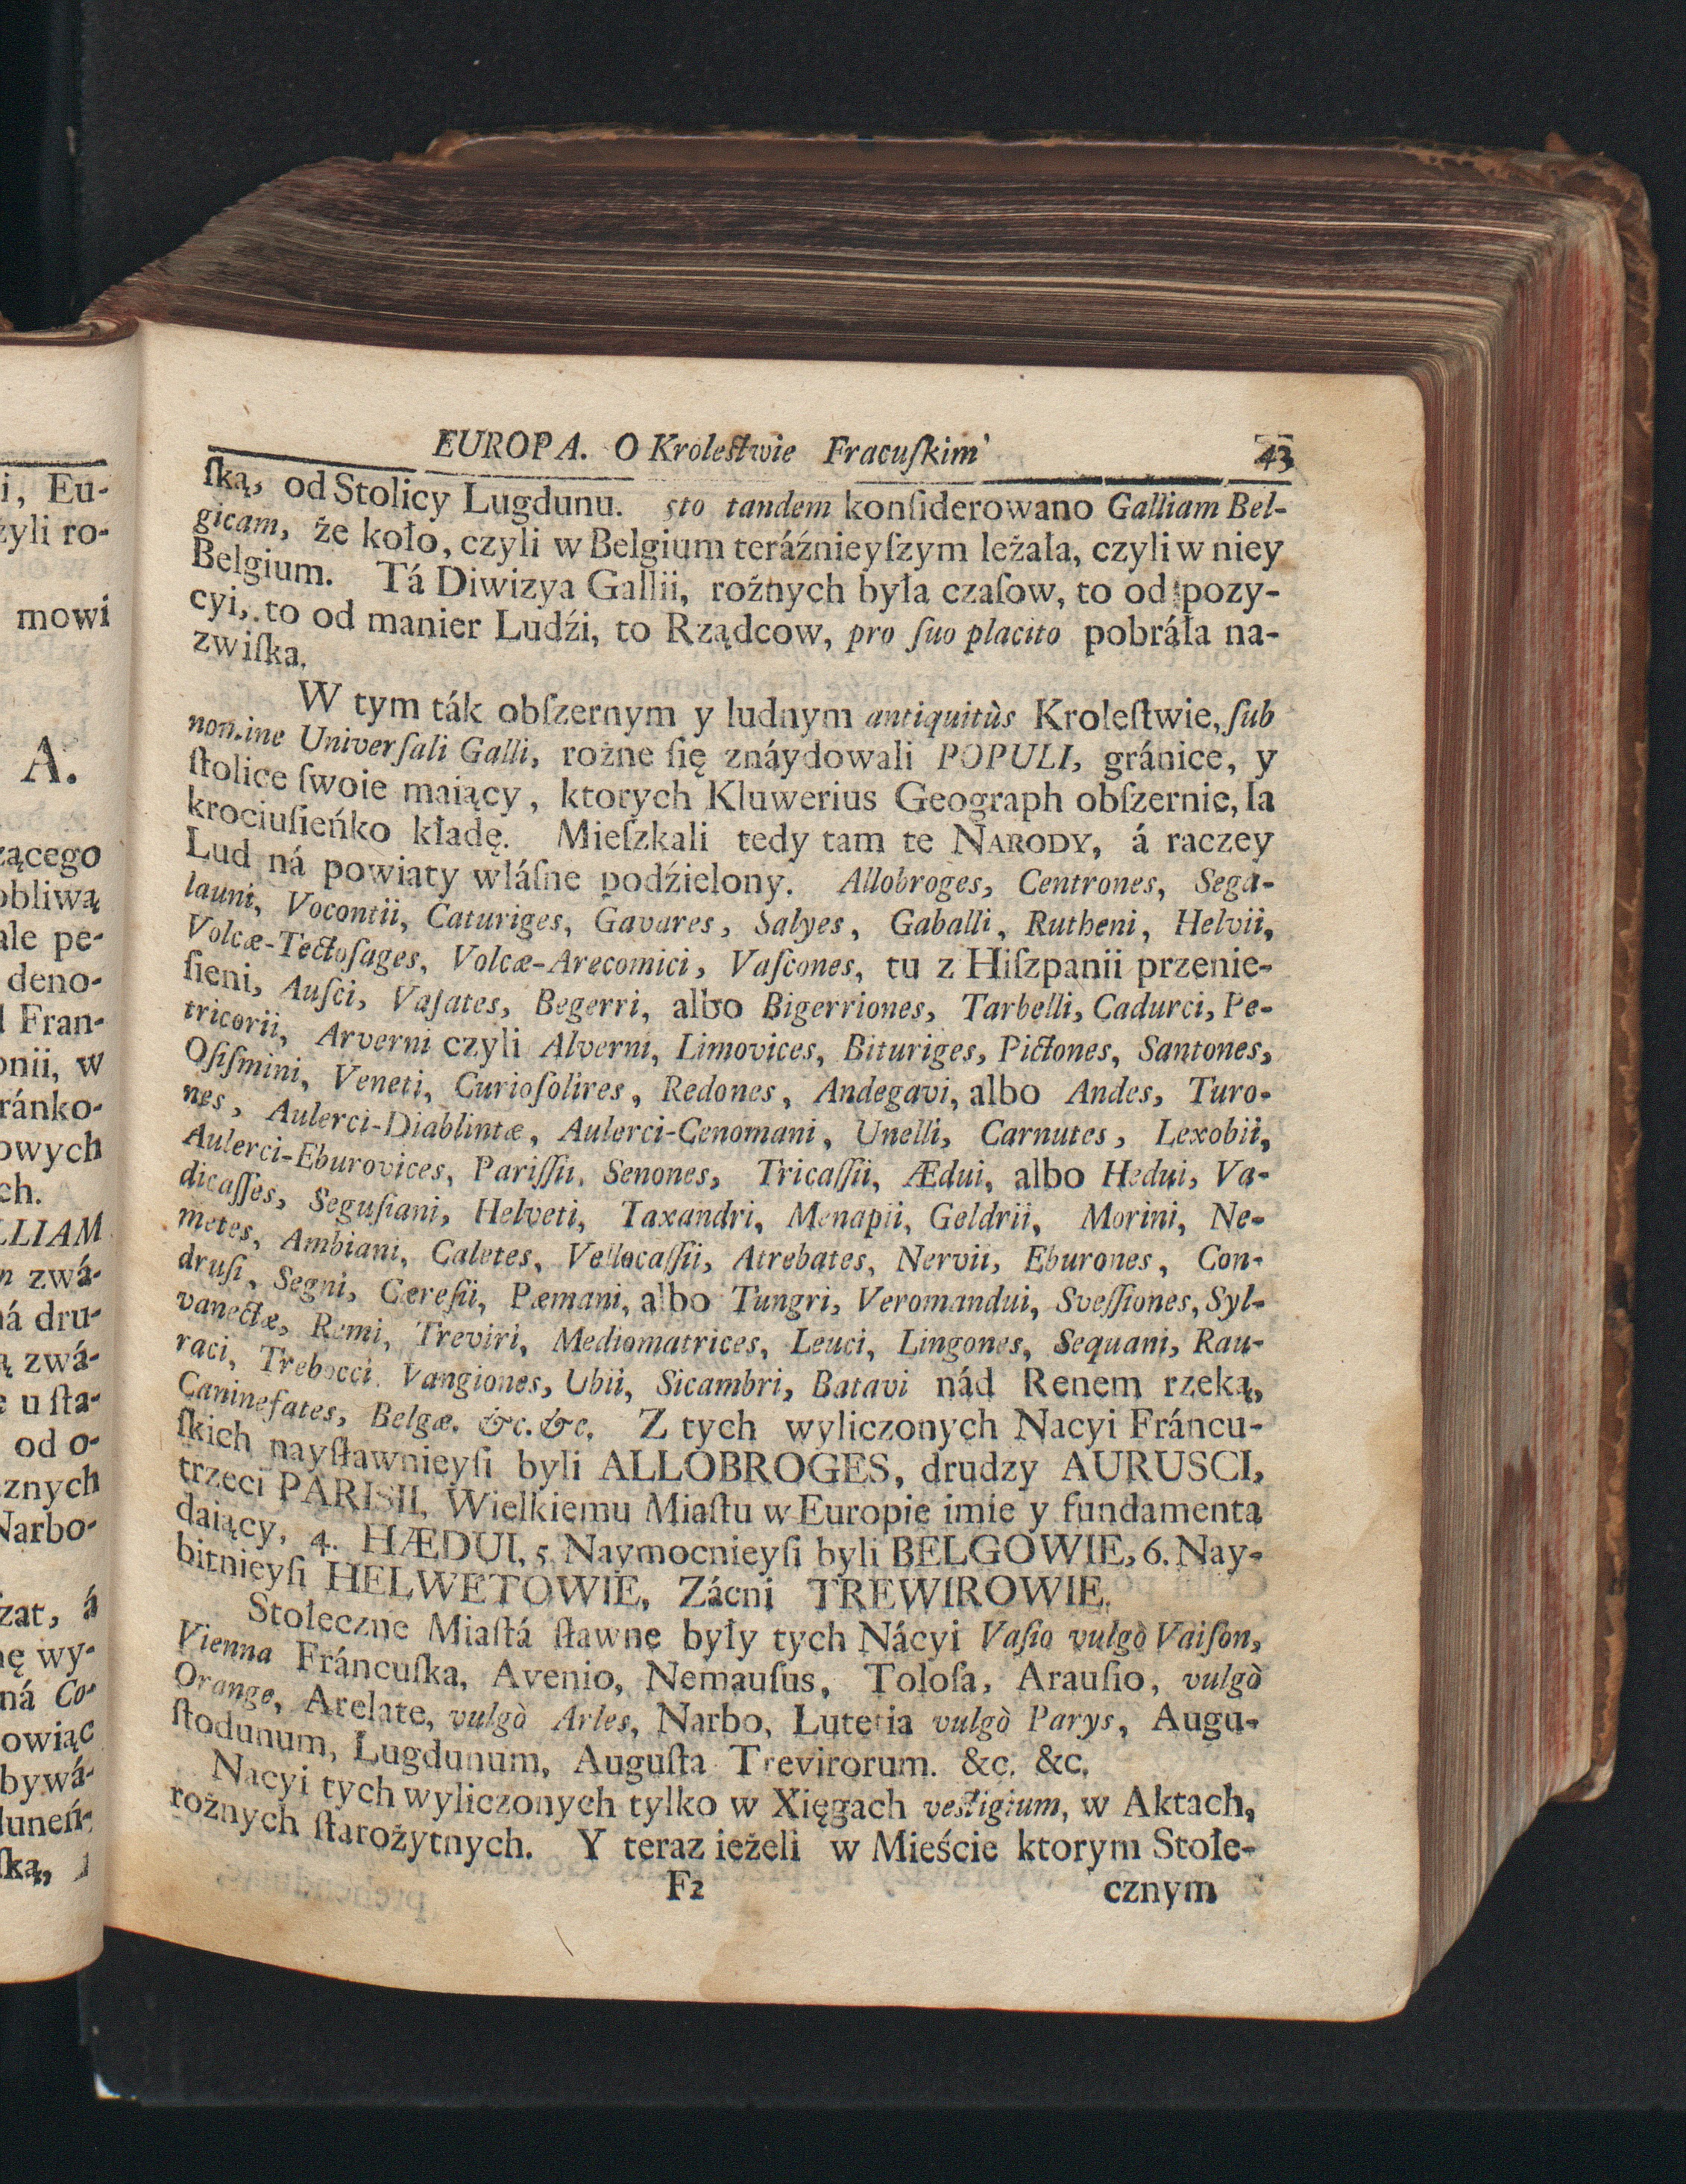 i, Eu-
żyli ro-
mowi
A.
zącego
obliwą
ale pe-
deno-
d Fran-
onii, w
ránko-
owych
ch.
LLIAM
n zwá-
ná dru-
ą zwá-
e u ſta-
od o-
znych
Narbo-
zat, á
nę wy-
ná Co-
owiąc
bywá-
duneń-
ſką,
EUROPA. O Kroleſtwie Fracuſkim 43
ſką, od Stolicy Lugdunu. 5to tandem konſiderowano Galliam Bel-
gicam, że koło, czyli w Belgium teráźnieyſzym leżała, czyli w niey
Belgium. Tá Diwizya Gallii, rożnych była czaſow, to od pozy-
cyi, to od manier Ludźi, to Rządcow, pro ſuo placito pobráła na-
zwiſka.
W tym ták obſzernym y ludnym antiquitùs Kroleſtwie, ſub
nomine Univerſali Galli, rożne ſię znáydowali POPULI, gránice, y
ſtolice ſwoie maiący, ktorych Kluwerius Geograph obſzernie, Ia
krociuſieńko kładę. Mieſzkali tedy tam te NARODY, á raczey
Lud ná powiaty właſne podźielony. Allobroges, Centrones, Sega-
launi, Vocontii, Caturiges, Gavares, Salyes, Gaballi, Rutheni, Helvii,
Volcæ-Tectoſages, Volcæ-Arecomici, Vaſcones, tu z Hiſzpanii przenie-
ſieni, Auſci, Vaſates, Begerri, albo Bigerriones, Tarbelli, Cadurci, Pe-
tricorii, Arverni czyli Alverni, Limovices, Bituriges, Pictones, Santones,
Oſiſmini, Veneti, Curioſolires, Redones, Andegavi, albo Andes, Turo-
nes, Aulerci-Diablintæ, Aulerci-Cenomani, Unelli, Carnutes, Lexobii,
Aulerci-Eburovices, Pariſſii, Senones, Tricaſſii, Ædui, albo Hedui, Va-
dicaſſes, Seguſiani, Helveti, Taxandri, Menapii, Geldrii, Morini, Ne-
metes, Ambiani, Caletes, Vellocaſſii, Atrebates, Nervii, Eburones, Con-
druſi, Segni, Cæreſii, Pæmani, albo Tungri, Veromandui, Sveſſiones, Syl-
vanectæ, Remi, Treviri, Mediomatrices, Leuci, Lingones, Sequani, Rau-
raci, Trebocci, Vangiones, Ubii, Sicambri, Batavi nád Renem rzeką,
Caninefates, Belgæ. &c. &c. Z tych wyliczonych Nacyi Fráncu-
ſkich nayſławnieyſi byli ALLOBROGES, drudzy AURUSCI,
trzeci PARISII, Wielkiemu Miaſtu w Europie imie y fundamenta
daiący, 4. HÆDUI, 5. Naymocnieyſi byli BELGOWIE, 6. Nay-
bitnieyſi HELWETOWIE, Zácni TREWIROWIE.
Stołeczne Miaſtá ſławne były tych Nácyi Vaſio vulgò Vaiſon,
Vienna Fráncuſka, Avenio, Nemauſus, Toloſa, Arauſio, vulgò
Orange, Arelate, vulgò Arles, Narbo, Lutetia vulgò Parys, Augu-
ſtodunum, Lugdunum, Auguſta Trevirorum. &c. &c.
Nacyi tych wyliczonych tylko w Xięgach veſtigium, w Aktach,
rożnych ſtarożytnych. Y teraz ieżeli w Mieście ktorym Stołe-
F2 cznym